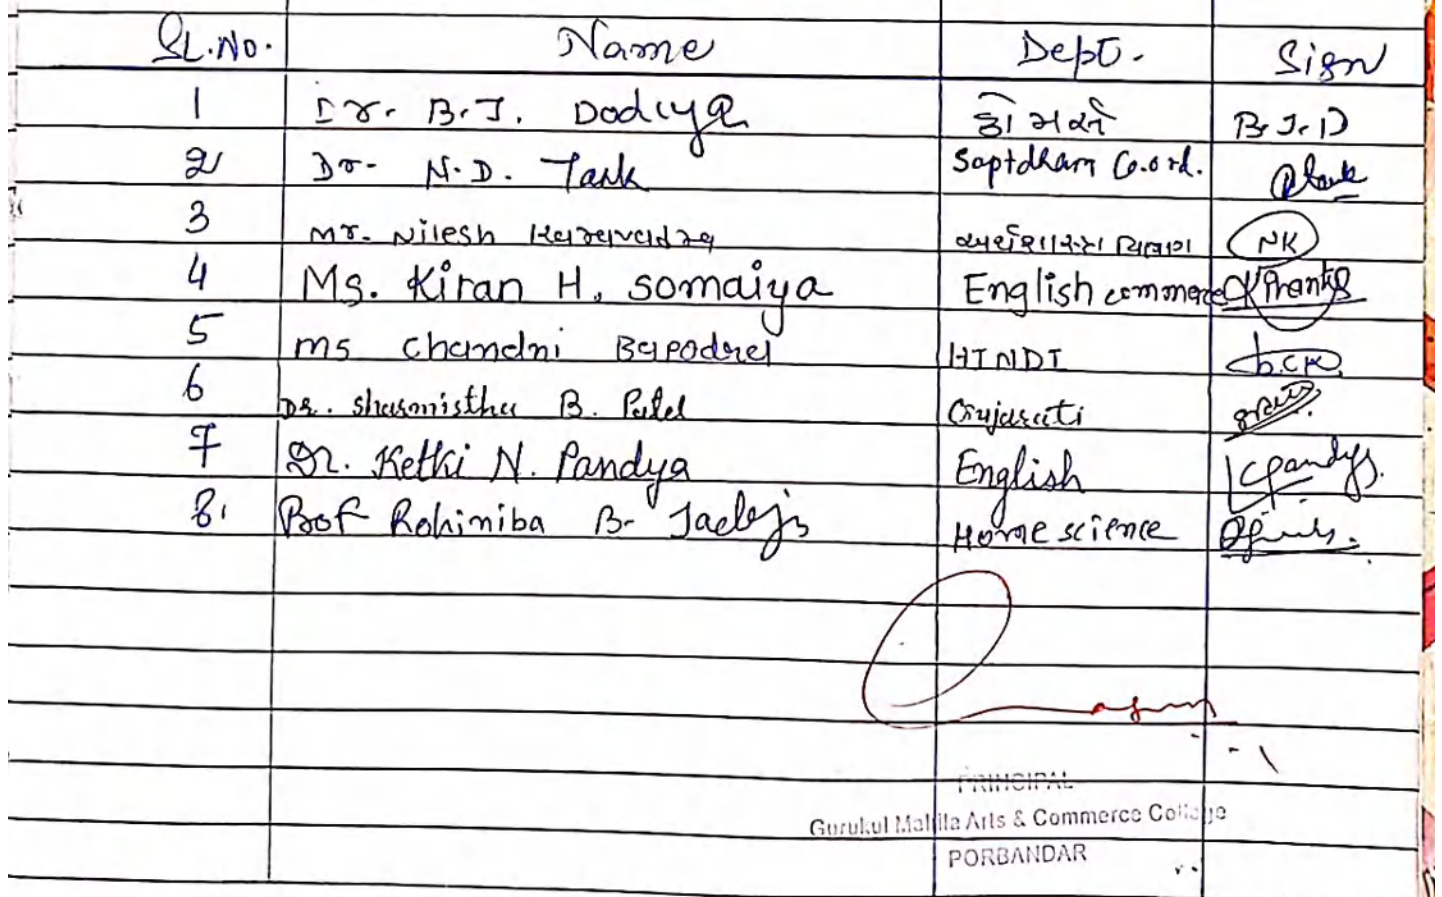 SL.No. Name Dept. Sign
1 Dr. B.J. Dodiya B.J.D
2 Dr- N.D. Tank Saptdham Co.ord.
3 Mr. Nilesh NK
4 Ms. Kiran H. somaiya English commerce
5 ms chandni Bapodra HINDI b.ck
6 Dr. sharmistha B. Patel Gujarati
7 Dr. Ketki N. Pandya English kpandya.
8. Prof Rohiniba B- Jadeja Home science
PRINCIPAL
Gurukul Mahila Arts & Commerce College
PORBANDAR